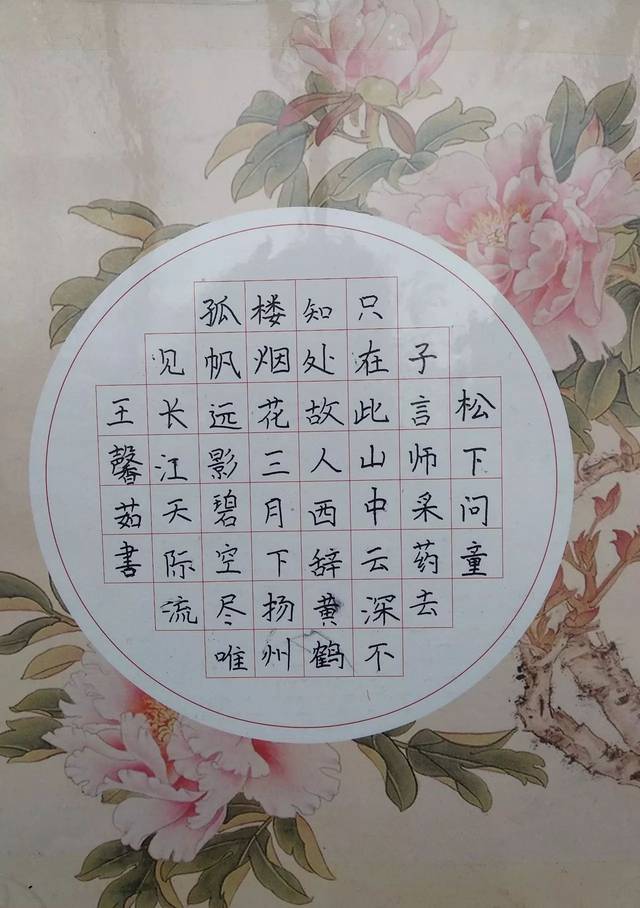 松下问童
子言师采药去
只在此山中云深不
知处故人西辞黄鹤
楼烟花三月下扬州
孤帆远影碧空尽唯
见长江天际流
王馨茹書